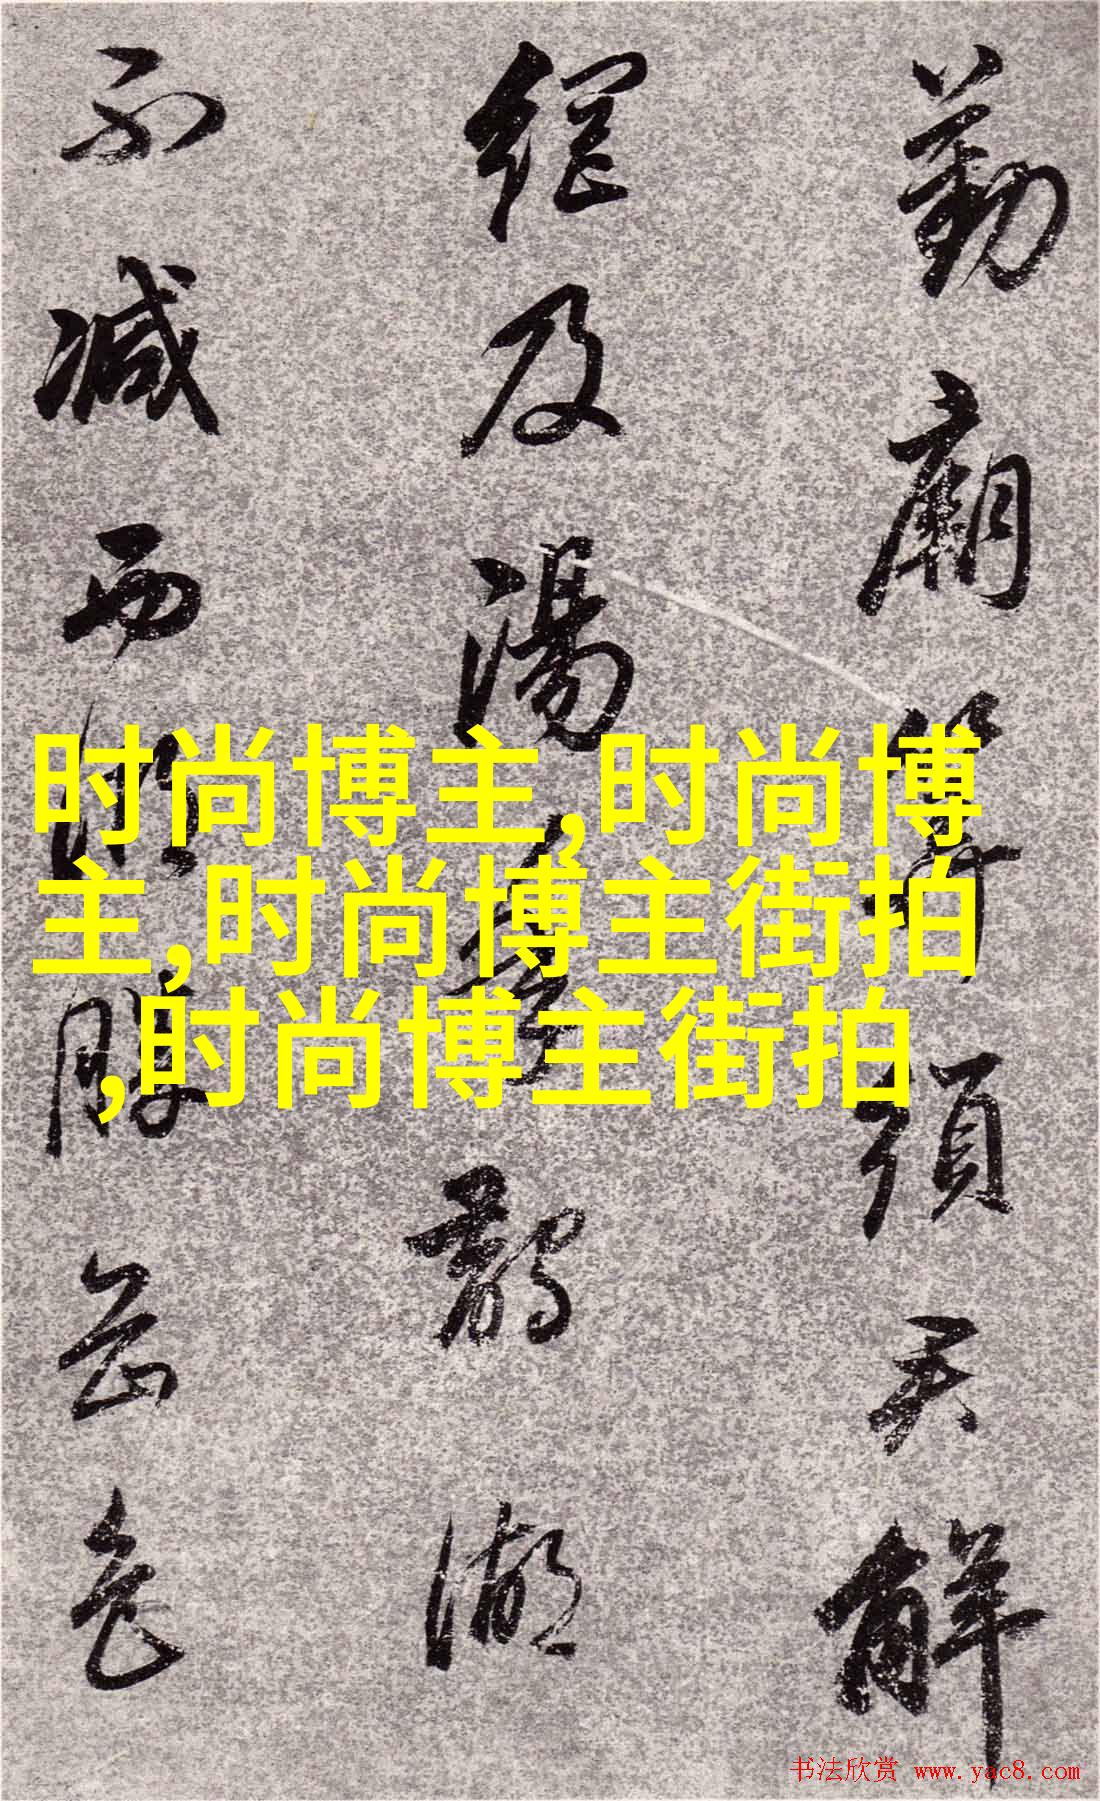 勤廟筭須君解
網及湯鵲湖
不減西湖勝岳色
时尚博主,时尚博
主,时尚博主街拍
,时尚博主街拍
书法欣赏 www.yac8.com